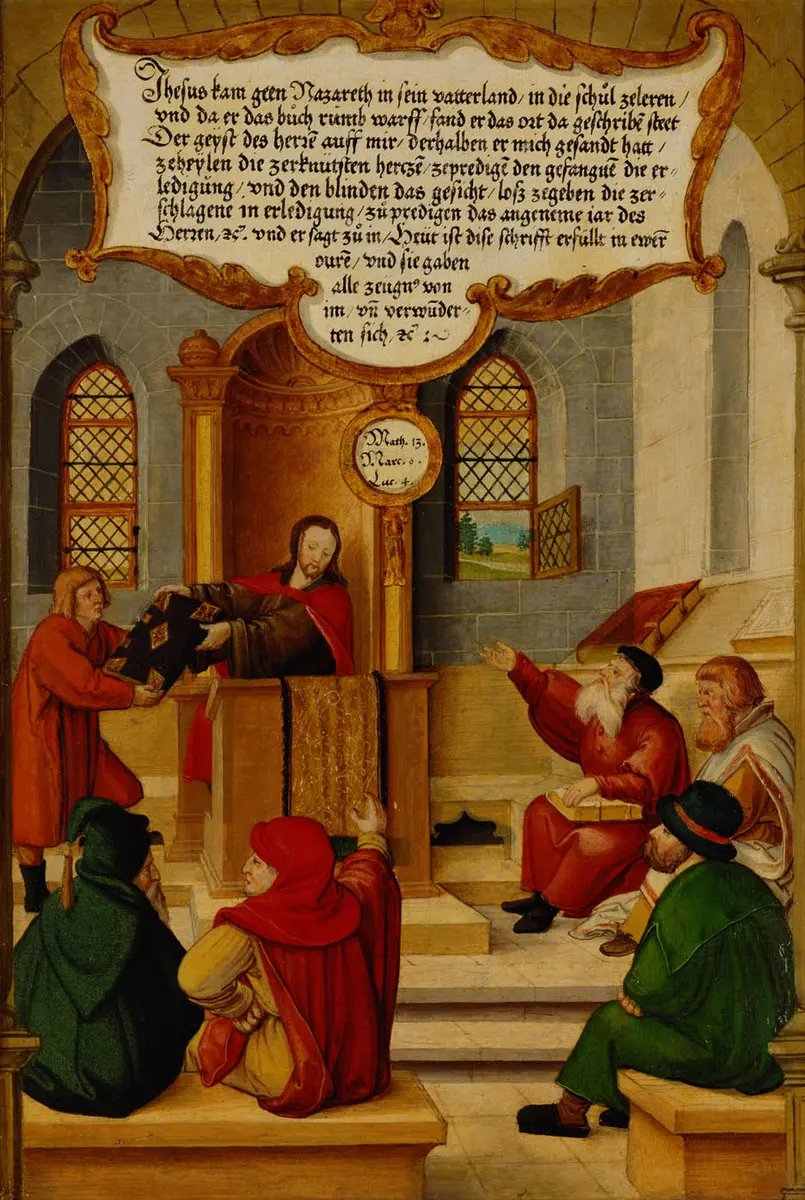 Jhesus kam geen Nazareth in sein vatterland / in die schůl zeleren /
vnd da er das bůch rumb warff / fand er das ort da geschribē steet
Der geyst des herrē auff mir / derhalben er mich gesandt hatt /
zeheylen die zerknütsten herczē / zepredigē den gefangnē die er-
ledigūng / vnd den blinden das gesicht / losz zegeben die zer-
schlagene in erledigung / zů predigen das angeneme iar des
Herren / ⁊c. vnd er sagt zů in / Heüt ist dise schrifft erfüllt in ewer̄
ourē / vnd sie gaben
alle zeugnꝰ von
im / vn̄ verwūder-
ten sich / ⁊c :~
Math. 13.
Marc. 6.
Luc. 4.